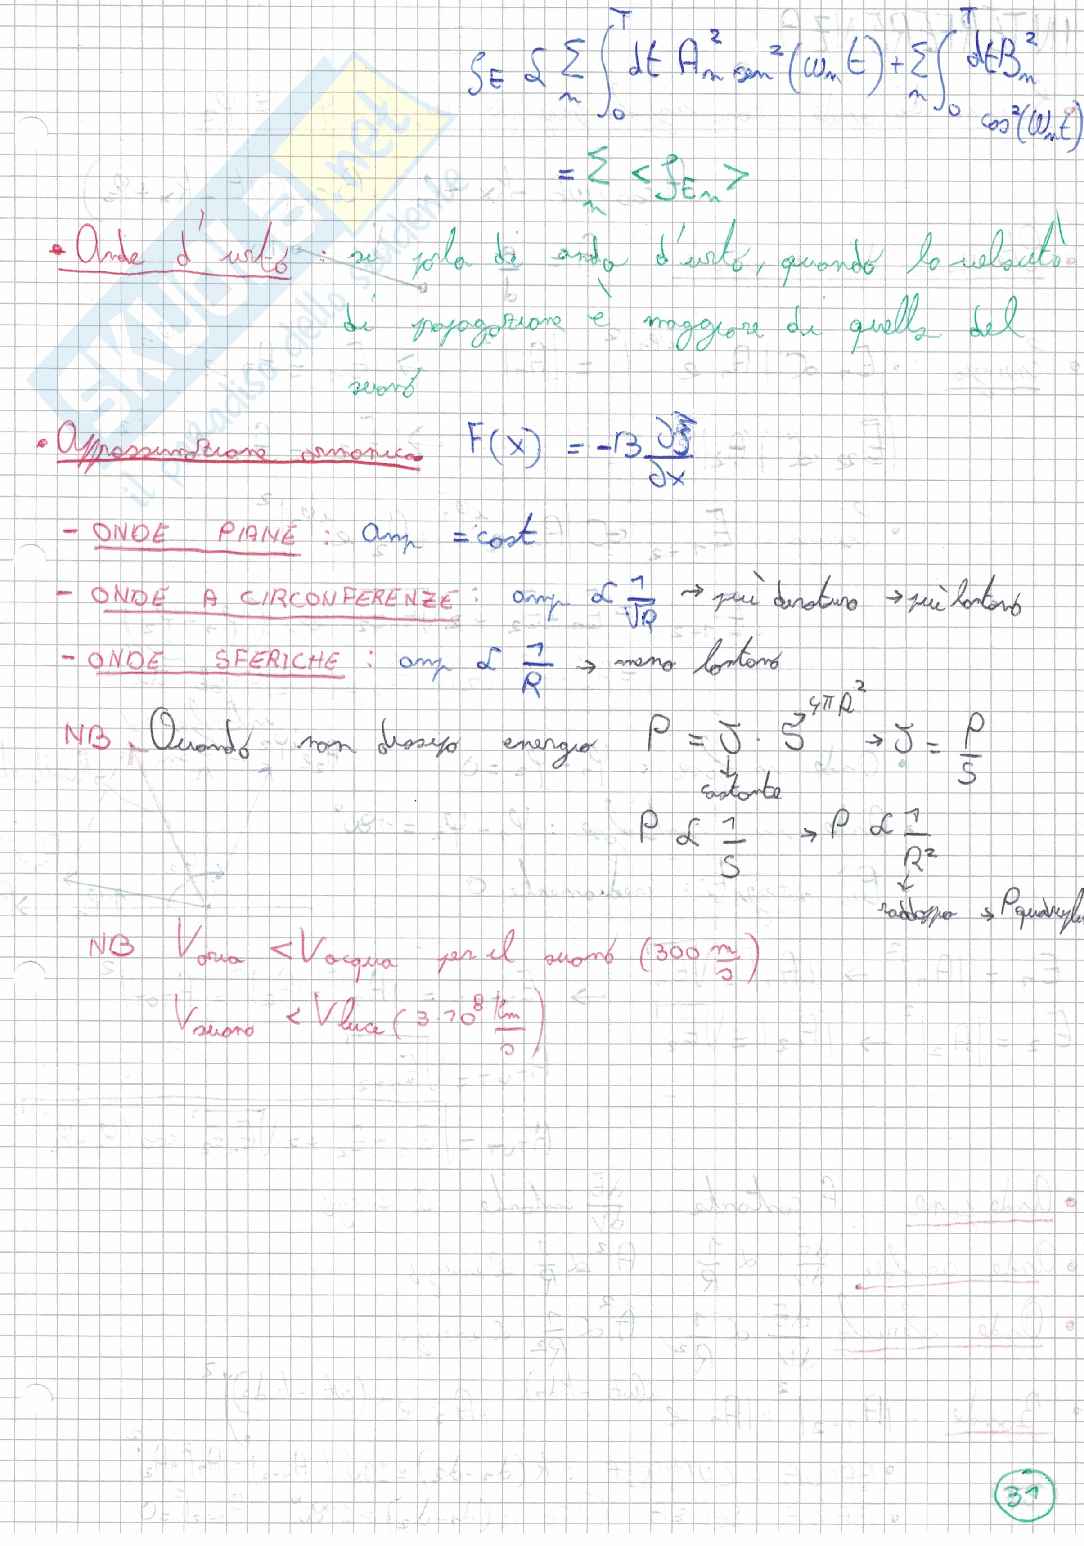 ρE α Σn ∫0T dt An² sen²(ωn t) + Σn ∫0T dt Bn² cos²(ωn t)
= Σn < ρEn >
• Onde d'urto : si parla di onda d'urto, quando la velocità
di propagazione è maggiore di quella del
suono
• Approssimazione armonica F(x) = -B ∂ξ/∂x
- ONDE PIANE : amp = cost
- ONDE A CIRCONFERENZE : amp α 1/√R → più duraturo → più lontano
- ONDE SFERICHE : amp α 1/R → meno lontano
NB. Quando non dissipo energia P = J · S → 4πR² → J = P/S
costante
P α 1/S → P α 1/R²
raddoppio →
NB Varia < Vacqua per il suono (300 m/s)
Vsuono < Vluce (3·10⁸ km/s)
31
SKUOLA.net
il paradiso dello studente